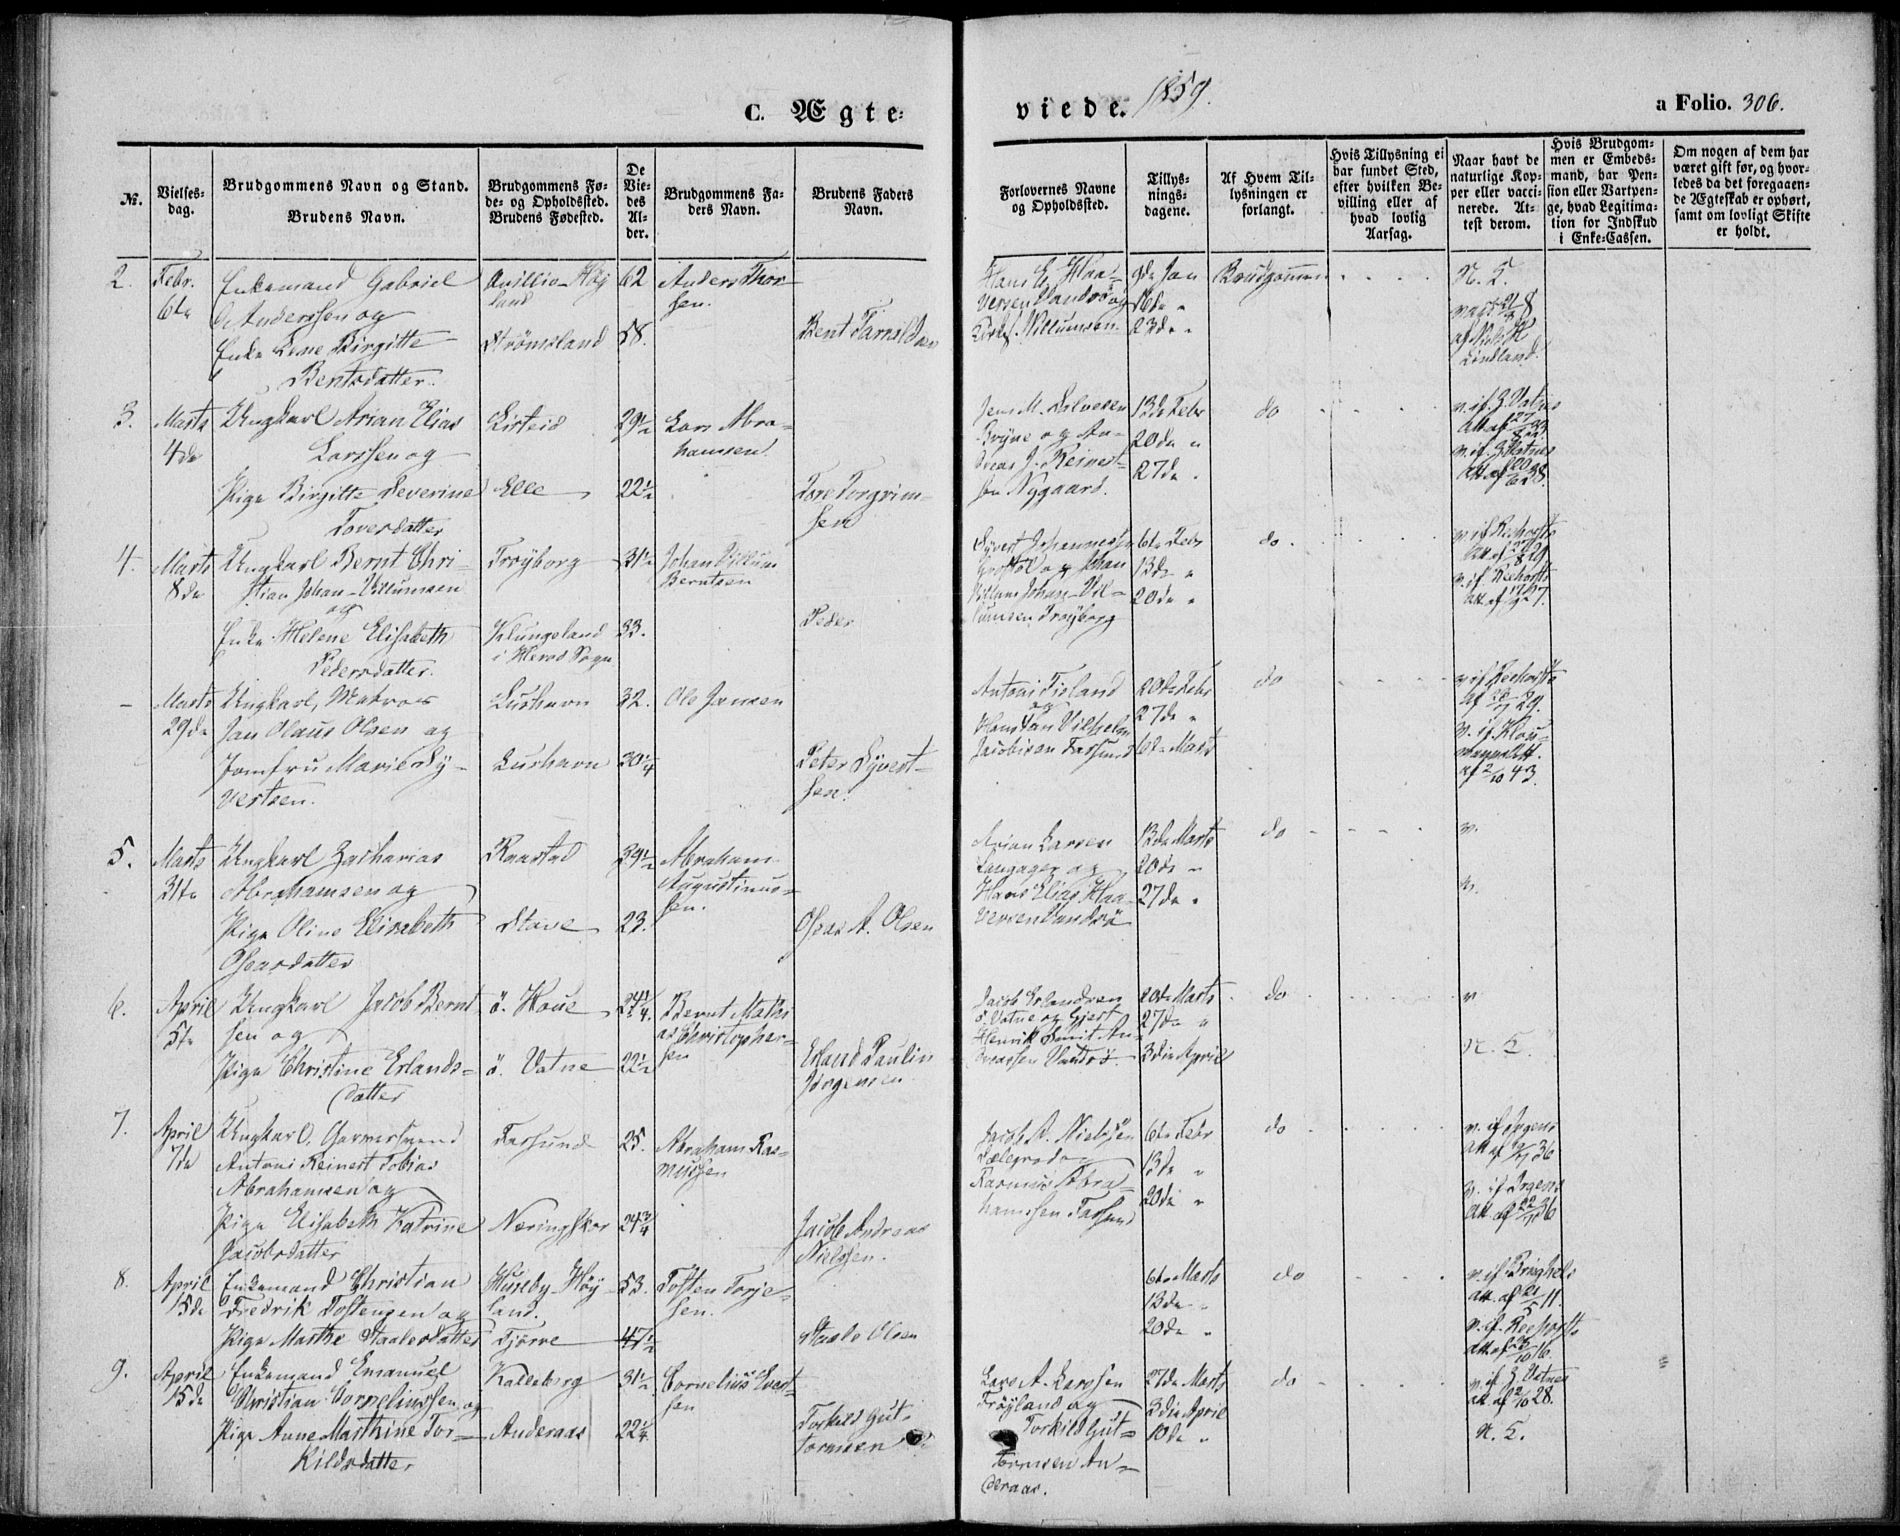 C. Ægte-
viede. 1859.
a Folio. 306.
№.
Vielses-
dag.
Brudgommens Navn og Stand.
Brudens Navn.
Brudgommens Fø-
de- og Opholdssted.
Brudens Fødested.
De
Vie-
des
Al-
der.
Brudgommens Fa-
ders Navn.
Brudens Faders
Navn.
Forlovernes Navne
og Opholdssted.
Tillys-
nings-
dagene.
Af Hvem Til-
lysningen er
forlangt.
Hvis Tillysning ei
har fundet Sted,
efter hvilken Be-
villing eller af
hvad lovlig
Aarsag.
Naar havt de
naturlige Kop-
per eller vacci-
nerede. At-
test derom.
Hvis Brudgom-
men er Embeds-
mand, har Pen-
sion eller Vartpen-
ge, hvad Legitima-
tion for Indskud
i Enke-Cassen.
Om nogen af dem har
været gift før, og hvor-
ledes da det foregaaen-
de Ægteskab er ophørt,
samt om lovligt Skifte
er holdt.
2.
Febr.
6te
Enkemand Gabriel
Anderssen og
Enke Lene Birgitte
Bentsdatter.
Høy
land
Strømsland
62
58.
Anders Thor-
sen.
Bent
Hans E. Haa-
versen Vandrø og
Villumsen.
9de Jan
16de "
23de "
Brudgommen
N. K.
Lindland.
3.
Marts
4de
Ungkarl Arian Elias
Larssen og
Pige Birgitte Severine
Toresdatter
Listeid
Elle
29½
22½
Lars Abra-
hamsen.
Tore Torgrim-
sen
Jens M.
Bryne og An-
dreas J. Reinert-
sen Nygaard.
13de Febr
20de "
27de "
do
v. if. G. Vatnes
Att. af
v. if. G. Vatnes
Att. af
4.
Marts
8de
Ungkarl Bernt Chri-
stian Johan-Villumsen
og
Enke Helene Elisabeth
Pedersdatter.
Trøyborg
Klungeland
i Herad Sogn
31½
33.
Johan Villum
Berntsen
Peder
Syvert Johannessen
og Johan
Villum Johan-Vil-
lumsen Trøyborg
6te Febr
13de "
20de "
do.
v. if. Reehorsts
Att. af
v. if. Reehorsts
Att. af
-
Marts
29de
Ungkarl, Matroes
Jan Olaus Olsen og
Jomfru Marie Sy-
vertsen.
Lushavn
Lushavn
32.
20¼
Ole Jansen
Peter Syvert-
sen.
Antoni Tisland
og
Hans Jan Vilhelm
Jacobsen Farsund
20de Febr
27de "
6te Marts
do
v. if. Reehorsts
Af 29.
v. if. Klou-
Att.
af 2/10 43.
5.
Marts
31te
Ungkarl Zacharias
Abrahamsen og
Pige Oline Elisabeth
Osearsdatter
Raastad
Stave
39½
23.
Abraham
Augustinus-
sen.
Osear A. Olsen
Arian Larsen
Langager og
Hans Elias Haa-
versen Vandrø
13de Marts
20de "
27de "
do
v.
v.
6.
April
5te
Ungkarl Jacob Bernt
sen og
Pige Christine Erlands-
datter
ö. Houe
ö. Vatne
24¼.
22½
Bernt Mathi
as Christopher-
sen
Erland Paulin
Jørgensen
Jacob Erlandsen
ö. Vatne og Gjert
Henrik Smit An-
dreassen Vandrø
20de Marts
27de "
3die April
do
v
N. K.
7.
April
7de
Ungkarl, Garversvend
Antoni Reinert Tobias
Abrahamsen og
Pige Elisabeth Katrine
Jacobsdatter
Farsund
Næringskor
25.
24¾
Abraham Ras-
mussen
Jacob Andreas
Nielssen.
Jacob A. Nielssen
og
Rasmus Abra-
hamssen Farsund
6te Febr
13de "
20de "
do
v. if. Irgens
Att. af 36
v. if. Irgens
Att. af 36
8.
April
15de
Enkemand Christian
Fredrik Tostensen og
Pige Marthe Staalesdatter
Huseby Høy
land.
Tjørve
53.
47½
Tosten Torje-
sen.
Staale Olsen
6te Marts
13de "
20de "
do
v. if. Bringhels
Att. af 21/5 11.
v. if. Reehorsts
Att. af 16.
9.
April
15de
Enkemand Emanuel
Christian Corneliussen og
Pige Anne Marthine Tor-
kildsdatter
Kalleberg
Anderaas
31½
22¼
Cornelius Evert-
sen
Torkild Gut-
tormsen
Lars A. Larssen
Frøyland og
Torkild Gut-
tormsen An-
deraas.
27de Marts
3die April
10de "
do
v. if. G. Vatnes
att. af 2/10 28.
N. K.